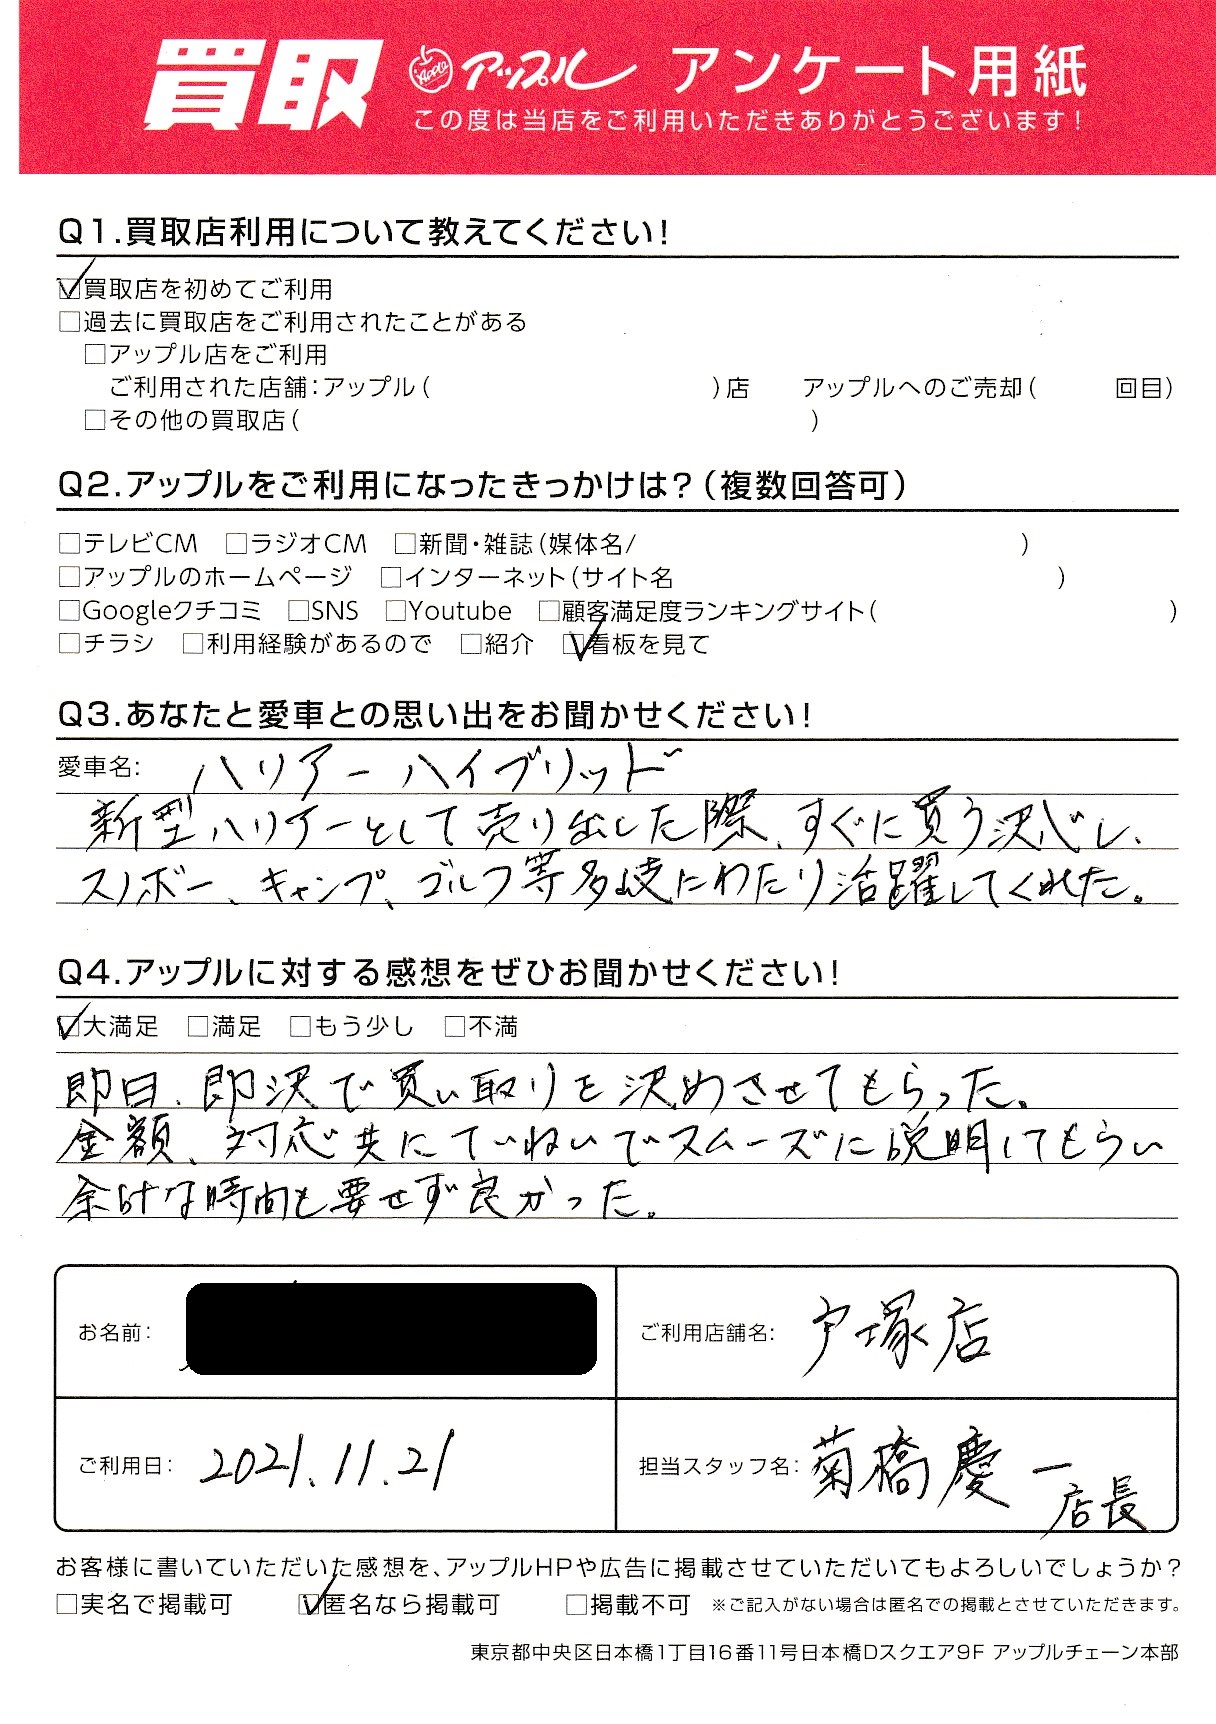 買取 Apple アップル アンケート用紙
この度は当店をご利用いただきありがとうございます!
Q1.買取店利用について教えてください!
☑買取店を初めてご利用
□過去に買取店をご利用されたことがある
□アップル店をご利用
ご利用された店舗:アップル( )店 アップルへのご売却( 回目)
□その他の買取店( )
Q2.アップルをご利用になったきっかけは?(複数回答可)
□テレビCM □ラジオCM □新聞・雑誌(媒体名/ )
□アップルのホームページ □インターネット(サイト名 )
□Googleクチコミ □SNS □Youtube □顧客満足度ランキングサイト( )
□チラシ □利用経験があるので □紹介 ☑看板を見て
Q3.あなたと愛車との思い出をお聞かせください!
愛車名: ハリアーハイブリッド
新型ハリアーとして売り出した際、すぐに買う決心し、
スノボー、キャンプ、ゴルフ等多岐にわたり活躍してくれた。
Q4.アップルに対する感想をぜひお聞かせください!
☑大満足 □満足 □もう少し □不満
即日、即決で買い取りを決めさせてもらった。
金額、対応共にていねいでスムーズに説明してもらい
余計な時間も要せず良かった。
お名前:
ご利用店舗名: 戸塚店
ご利用日: 2021.11.21
担当スタッフ名: 菊橋慶一
店長
お客様に書いていただいた感想を、アップルHPや広告に掲載させていただいてもよろしいでしょうか?
□実名で掲載可 ☑匿名なら掲載可 □掲載不可 ※ご記入がない場合は匿名での掲載とさせていただきます。
東京都中央区日本橋1丁目16番11号日本橋Dスクエア9F アップルチェーン本部